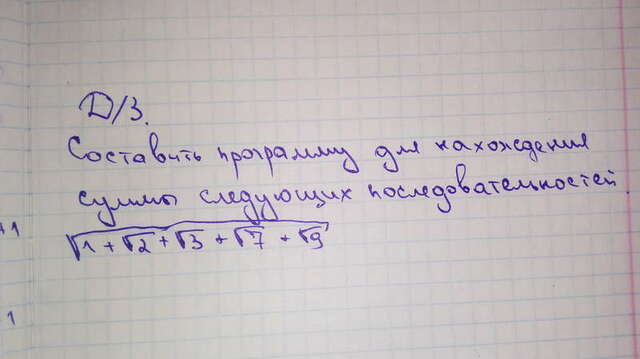 Д/З.
Составить программу для нахождения
суммы следующих последовательностей.
√1 + √2 + √3 + √7 + √9